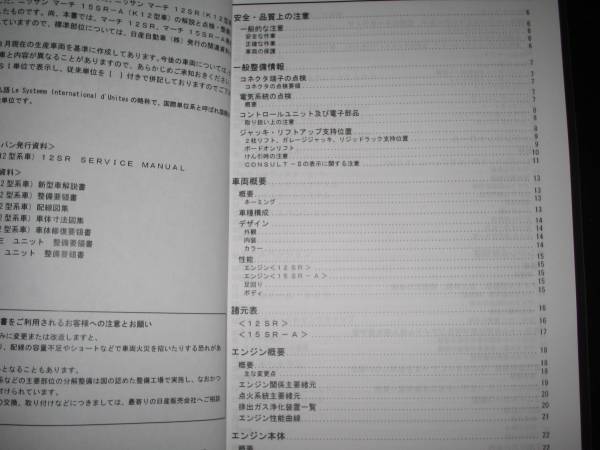 たものです。尚、本書では、マーチ 12SR、マーチ 15SR-A
ていますので、標準部位については、日産自動車(株)発行の関連
月現在の生産車両を基準に作成してあります。今後の車両については
車と内容が異なることがありますので、あらかじめご承知おきください
SI単位で表示し、従来単位を{ }付きで併記しておりますのでご
語Le Systeme International d'Unitesの略称で、国際単位系と呼ばれ
単位です。
パン発行資料>
12型系車)12SR SERVICE MANUAL
資料>
2型系車)新型車解説書
2型系車)整備要領書
2型系車)配線図集
2型系車)車体寸法図集
2型系車)車体修復要領書
E ユニット 整備要領書
ユニット 整備要領書
書をご利用されるお客様への注意とお願い
みに変更または改造しますと、
り、配線の容量不足やショートなどで車両火災を招いたりする恐れがあ
となることもあります。
系などの主要部位の分解整備は国の認めた整備工場で実施し、なおかつ
付けられています。
の交換、取り付けなどにつきましては、最寄りの日産販売会社へご相談
安全・品質上の注意 6
一般的な注意 6
安全な作業 6
正確な作業
車両の保護
一般整備情報 7
コネクタ端子の点検 7
コネクタの点検要領 7
電気系統の点検 7
概要 7
コントロールユニット及び電子部品 8
取り扱い上の注意 8
ジャッキ・リフトアップ支持位置 8
2柱リフト、ガレージジャッキ、リジッドラック支持位置 8
ボードオンリフト 9
けん引時の注意 10
CONSULT-Ⅱの表示に関する注意 11
車両概要 13
概要 13
ネーミング 13
車種構成 13
デザイン 14
外観 14
内装 14
カラー 14
性能 15
エンジン<12SR> 15
エンジン<15SR-A> 15
足回り 15
ボディ 15
諸元表 16
<12SR> 16
<15SR-A> 17
エンジン概要 18
概要 18
主な変更点 18
エンジン関係主要諸元 19
点火系統主要諸元 20
排出ガス浄化装置一覧 20
エンジン性能曲線 21
エンジン本体 22
概要 22